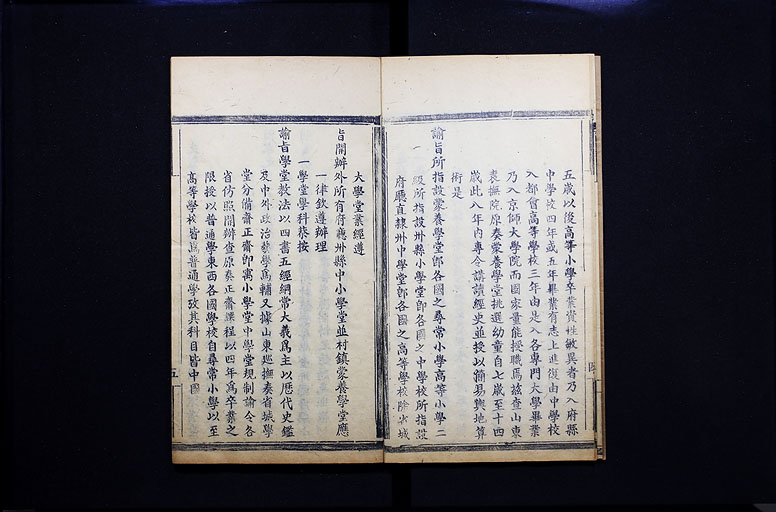 五歲以後高等小學卒業資性敏異者乃入府縣
中學校四年或五年畢業有志上進復由中學校
入都會高等學校三年由是入各專門大學畢業
乃入京師大學院而國家量能授職焉茲查山東
袁撫院原奏蒙養學堂挑選幼童自七歲至十四
歲此八年內專令講讀經史並授以簡易輿地算
術是
諭旨所指設蒙養學堂卽各國之尋常小學高等小學二
級所指設州縣小學堂卽各國之中學校所指設
府廳直隸州中學堂卽各國之高等學校除省城
五
大學堂業經遵
旨開辦外所有府廳州縣中小學堂並村鎮蒙養學堂應
一律欽遵辦理
一學堂學科恭按
諭旨學堂敎法以四書五經綱常大義爲主以歷代史鑑
及中外政治藝學爲輔又據山東巡撫奏省城學
堂分備齋正齋卽寓小學堂中學堂規制諭令各
省仿照開辦查原奏正齋課程以四年爲卒業之
限授以普通學東西各國學校自尋常小學以至
高等學校皆爲普通學攷其科目皆中國